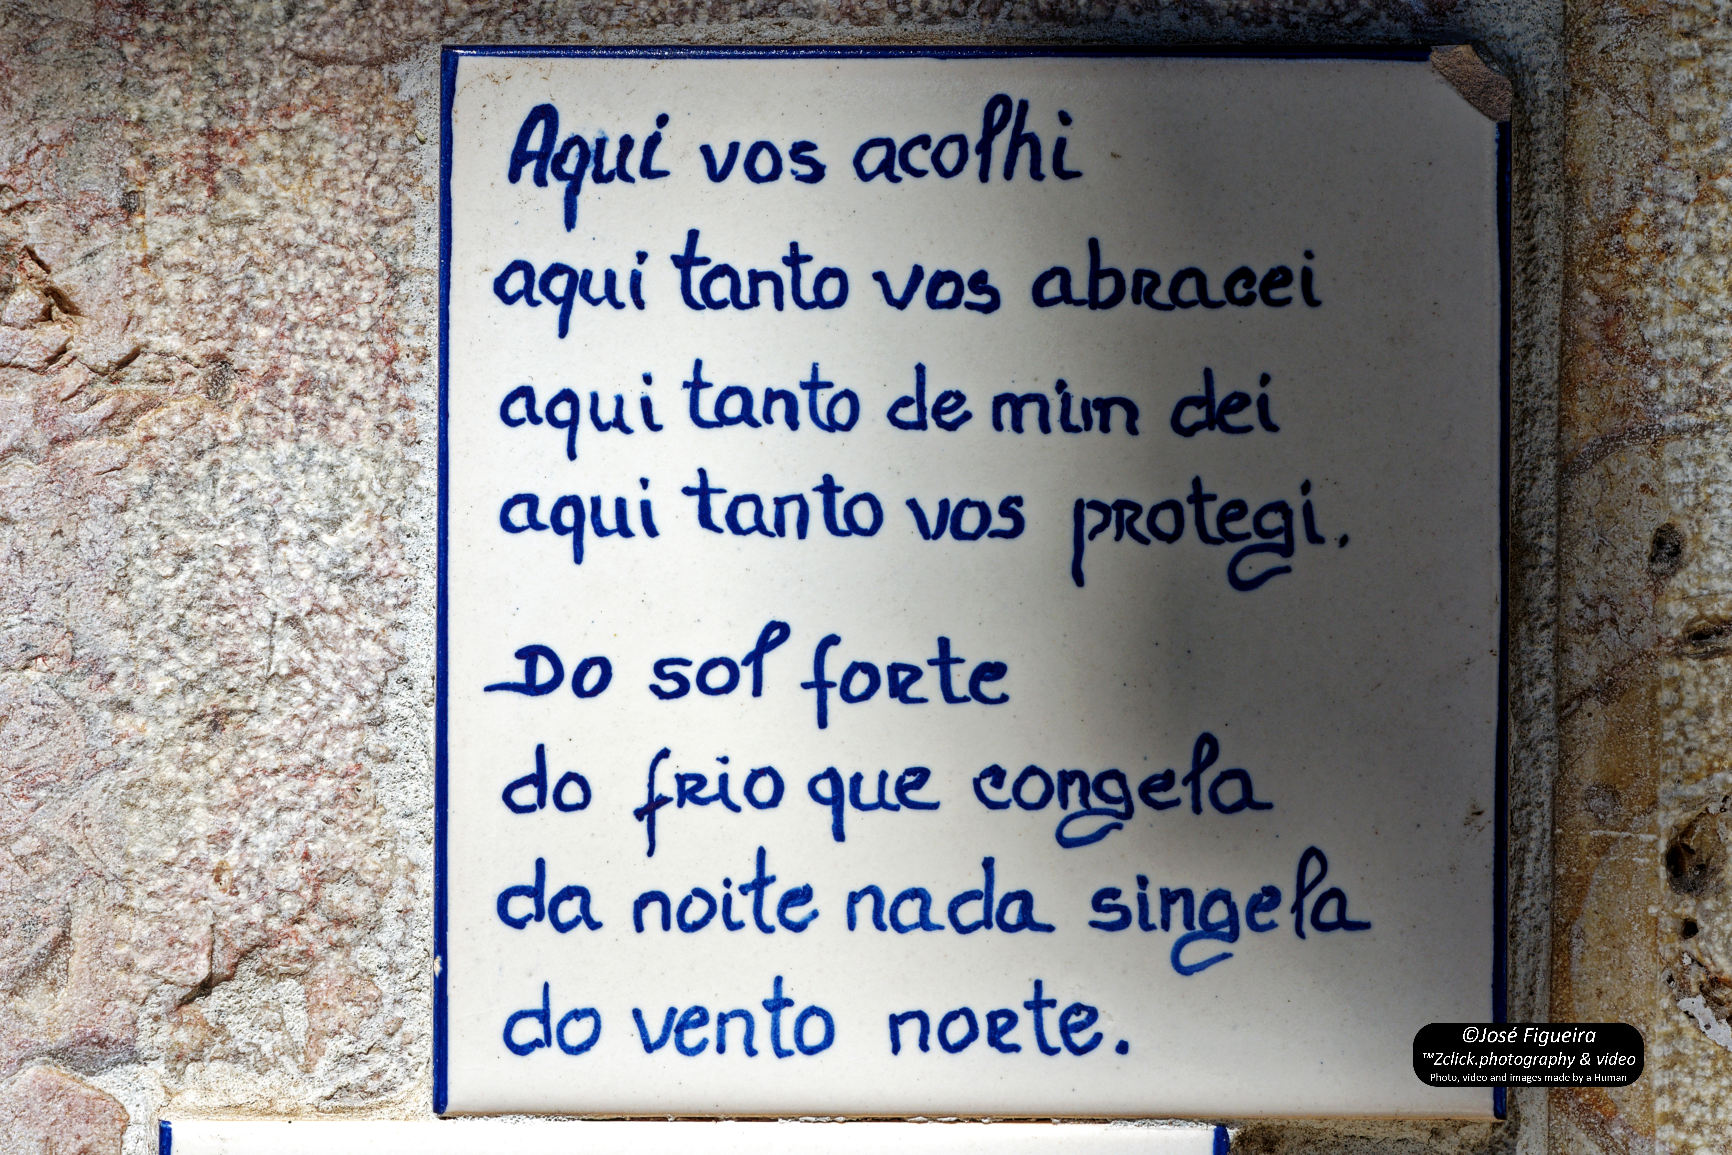 Aqui vos acolhi
aqui tanto vos abracei
aqui tanto de mim dei
aqui tanto vos protegi.
Do sol forte
do frio que congela
da noite nada singela
do vento norte.
©José Figueira
™Zclick.photography & video
Photo, video and images made by a Human